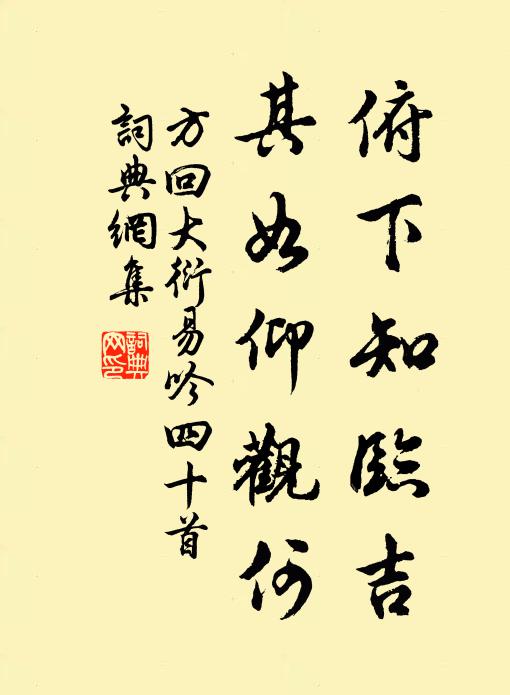 俯下知臨吉
其如仰觀何
方回大衍易吟四十首
詞典網集
詞典網印